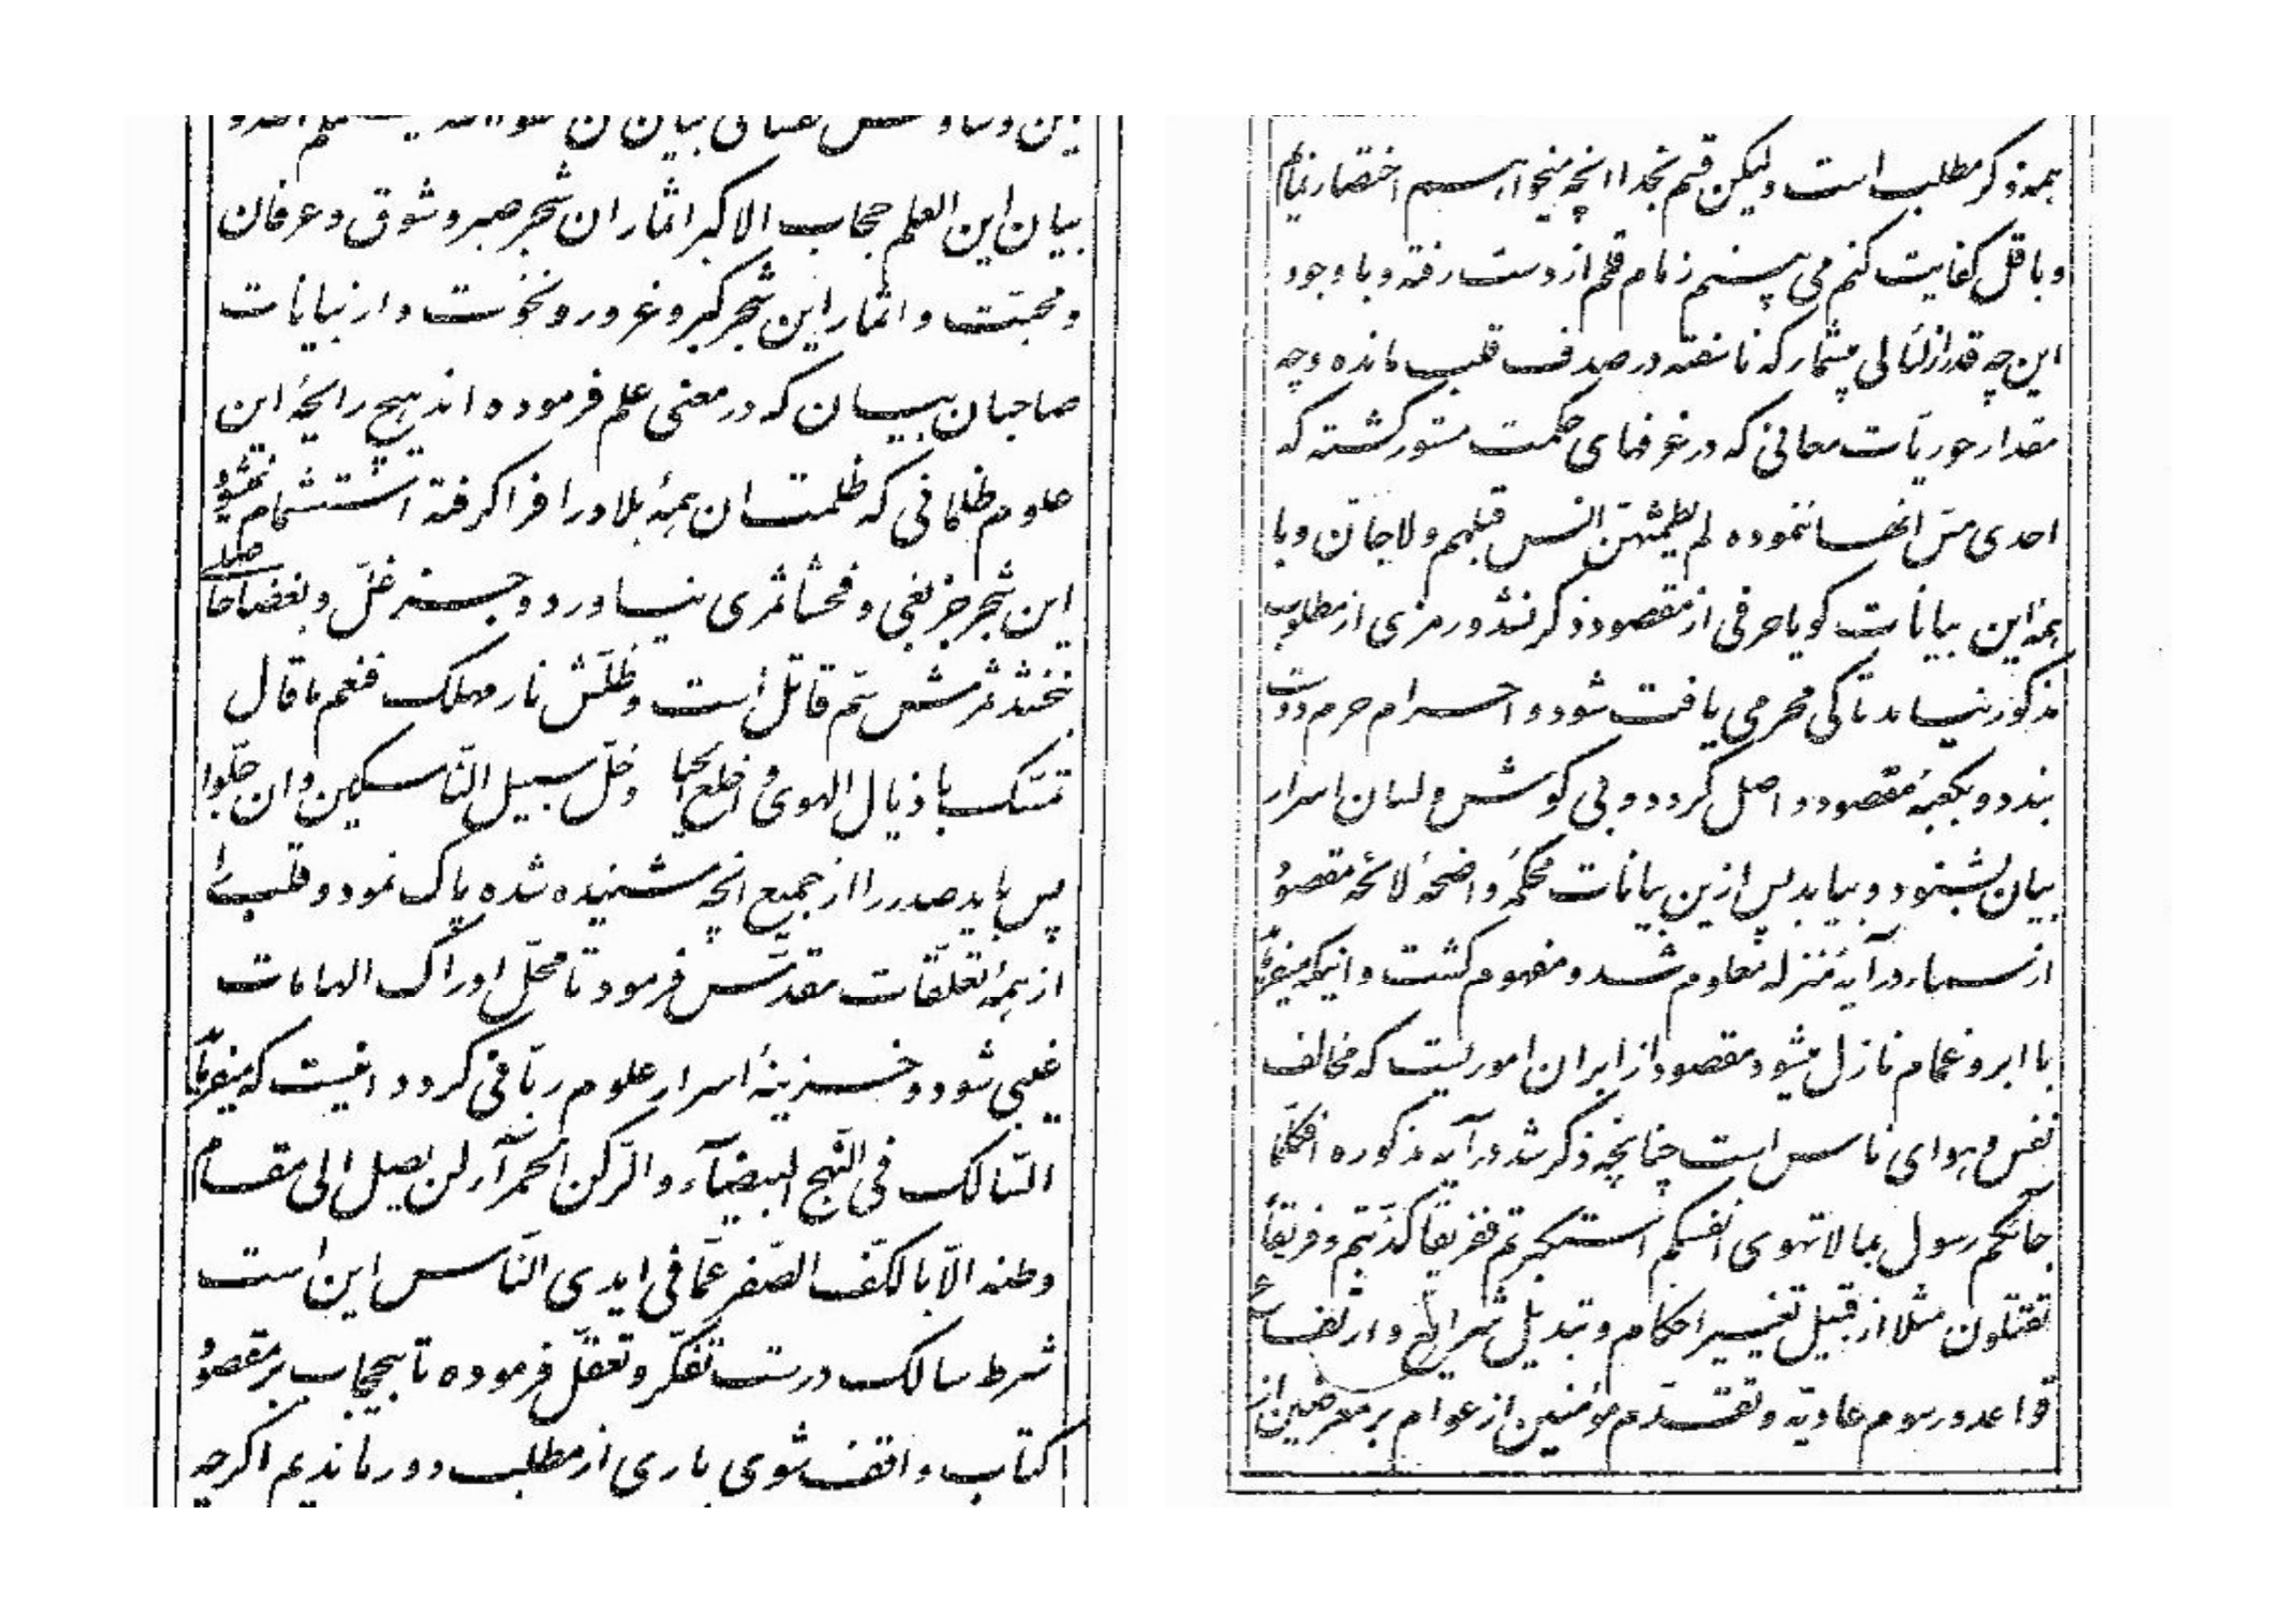 بیان این العلم حجاب الاکبر اثمار ان شجر صبر و شوق و عرفان
و محبّت و اثمار این شجر کبر و غرور و نخوت و از بیانات
صاحبان بیان که در معنی علم فرموده اند هیچ رایحهٔ این
علوم ظلمانی که ظلمت ان همهٔ بلاد را فرا کرفته استشمام نمیشود
این شجر جز بغی و فحشا ثمری نیاورد و جز غلّ و بغضا حاصلی
نبخشد ثمرش سّم قاتل است و ظلّش نار مهلک فنعم ما قال
تمسّک باذیال الهوی و اخلع الحیا و خلّ سبیل النّاسکین و ان جلّوا
پس باید صدر را از جمیع انچه شنیده شده پاک نمود و قلب را
از همهٔ تعلّقات مقدّس فرمود تا محلّ ادراک الهامات
غیبی شود و خزینهٔ اسرار علوم ربّانی کردد اینست که میفرماید
السّالک فی النّهج البیضآء و الرّکن الحمرآء لن یصل الی مقام
وطنه الّا بالکفّ الصّفر عمّا فی ایدی النّاس این است
شرط سالک درست تفکّر و تعقّل فرموده تا بیحجاب بر مقصود
کتاب واقف شوی باری از مطلب دور ماندیم اکرچه
همه ذکر مطلب است ولیکن قسم بخدا انچه میخواهم اختصار نمایم
و باقل کفایت کنم می بینم زمام قلم از دست رفته و با وجود
این چه قدر از لئالی بیشمار که ناسفته در صدف قلب مانده و چه
مقدار حوریّات معانی که در غرفهای حکمت مستور کشته که
احدی مسّ انها ننموده لم یطمثهنّ انس قبلهم و لا جانّ و با
همهٔ این بیانات کویا حرفی از مقصود ذکر نشد و رمزی از مطلوب
مذکور نیامد تا کی محرمی یافت شود و احرام حرم دوست
بندد و بکعبهٔ مقصود واصل کردد و بی کوش و لسان اسرار
بیان بشنود و بیابد پس ازین بیانات محکمهٔ واضحهٔ لائحه مقصود
از سماء در آیهٔ منزله معلوم شد و مفهوم کشت و اینکه میفرماید
با ابر و غمام نازل میشود مقصود از ابر ان اموریست که مخالف
نفس و هوای ناس است چنانچه ذکر شد در آیه مذکوره افکلّما
جآئکم رسول بما لا تهوی انفسکم استکبرتم ففریقاً کذّبتم و فریقاً
تقتلون مثلا از قبیل تغییر احکام و تبدیل شرایع و ارتفاع
قواعد و رسوم عادیّه و تقدّم مؤمنین از عوام بر معرضین از